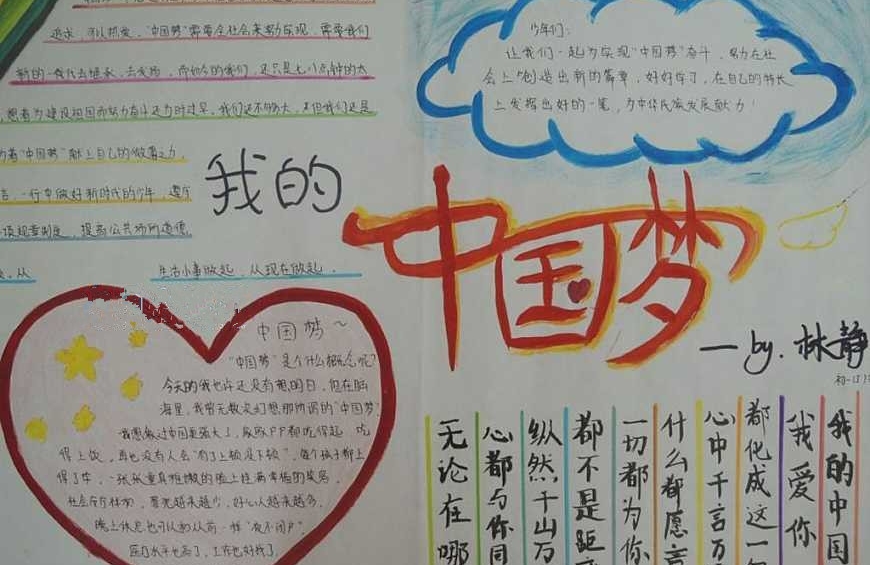 追求,可以热爱。"中国梦"需要全社会来努力实现,需要我们
新的一代去继承,去发扬。而如今的我们,还只是七八点钟的太
想着为建设祖国而努力奋斗还为时过早,我们还不够大,不但我们还是
着"中国梦"献上自己的微薄之力。
言一行中做好新时代的少年,遵守
项规章制度,提高公共场所道德,
从
生活小事做起,从现在做起。
我的
中国梦
一by.林静
少年们:
让我们一起为实现"中国梦"奋斗,努力在社
会上创造出新的篇章,好好学习,在自己的特长
上发挥出好的一笔,为中华民族发展献力!
中国梦~
"中国梦"是个什么概念呢?
今天的我也许还没有想明白,但在脑
海里,我曾无数次幻想那所谓的"中国梦"
我想做过中国更强大了,家家户户都吃得起 吃
得上饭,再也没有人会"有了上顿没下顿",每个孩子都上
得了学,一张张童真稚嫩的脸上挂满幸福的笑容,
社会今斤样和,冒充越来越少,好心人越来越多,
晚上休息也可以和从前一样"夜不闭户",
医疗水平也高了,工作也好找了。
我的中国
我爱你
都化成这一句
心中千言万
什么都愿意
一切都为你
都不是距离
纵然千山万
心都与你同
无论在哪